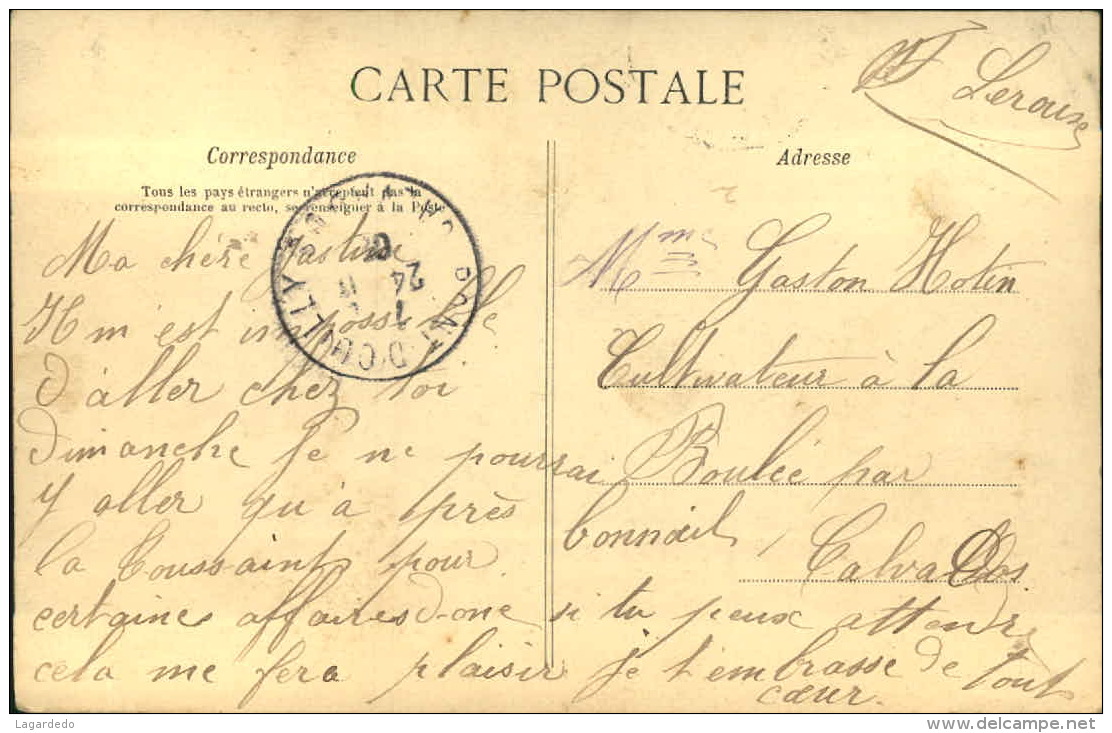 CARTE POSTALE
Lerouse
Correspondance
Tous les pays étrangers n'acceptent pas la
correspondance au recto, se renseigner à la Poste
Ma chère
Il m'est impossible
d'aller chez toi
dimanche Je ne pourrai
y aller qu'à près
la Toussaint pour
certaines affaires d-onc si tu peux attendre
cela me fera plaisir je t'embrasse de tout
cœur.
Adresse
Mme Gaston Hotin
Cultivateur à la
Boulée par
bonnail,
Calvados
PONT D'OUILLY
24
Lagardedo
delcampe.net